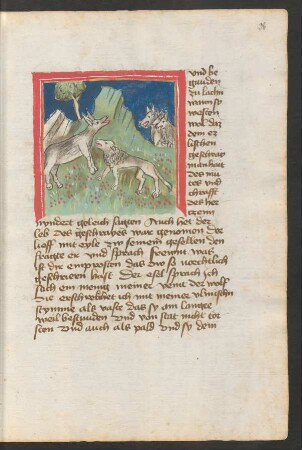 und be
gunden
zu lachn
wann sy
westen
wol daz
dem ez
lischen
geschray
man hait
des mu
tes und
chrafft
des her
tzenn
wyndert geleich sagten Auch het der
leb des geschrayes war genomen der
lieff mit eyle zw seinem gesellen den
fragte er und sprach frewnt was
ist dir enpfrosten das dw so
geschrieren hast Der esel sprach Ich
sach ein menig meiner veint der wolff
die erschrekhet ich mit meiner
stymme als vaste das sy am lange
weil bestunden Und von stat nicht tor
sten Und auch als pald Und sy dem